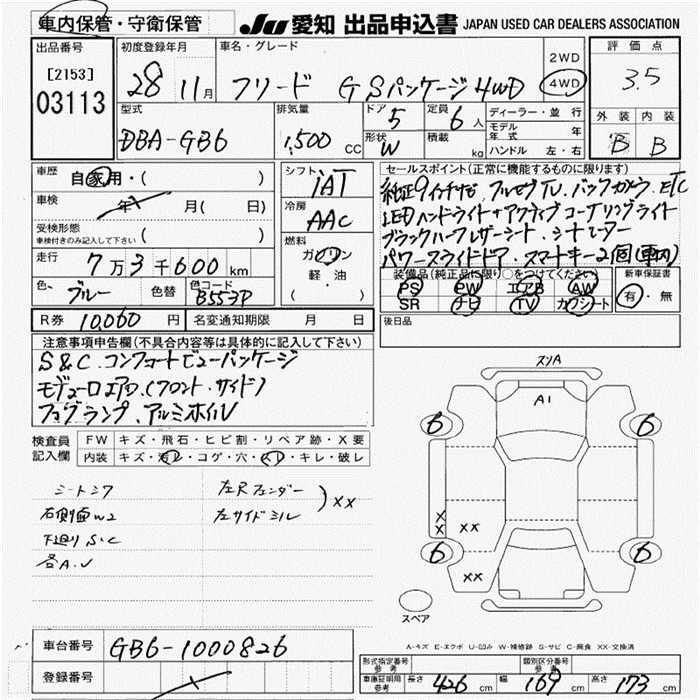 車内保管・守衛保管
JU 愛知 出品申込書 JAPAN USED CAR DEALERS ASSOCIATION
出品番号
[2153]
03113
初度登録年月
28年 11月
車名・グレード
フリード G Sパッケージ4WD
2WD
4WD
評価点
3.5
外装 内装
B B
型式
DBA-GB6
排気量
1,500 CC
ドア 5
定員 6人
形状 W
積載 kg
ディーラー・並行
モデル年式 年
ハンドル 左・右
車歴 自家用・( )
車検 年 月( 日)
受検形態
車検付きのみ記入して下さい ( )
走行 7万3千600km
色 ブルー
色替
色コード B553P
シフト
iAT
冷房
AAC
燃料
ガソリン
軽・油
( )
セールスポイント(正常に機能するものに限ります)
純正9インチナビ、フルセグTV、バックカメラ、ETC
LEDハンドライト+アクティブコーナリングライト
ブラックハーフレザーシート、シートヒーター
パワースライドドア、スマートキー2個(車内)
装備品(純正品に限り○をつけてください)
PS PW エアB AW
SR ナビ TV カワシート
新車保証書
有・無
R券 10,060円
名変通知期限 月 日
後日品
注意事項申告欄(不具合内容等は具体的に記入して下さい)
S&C.コンフォートビューパッケージ
モデューロエアロ(フロント.サイド)
フォグランプ、アルミホイル
検査員記入欄
FW キズ・飛石・ヒビ割・リペア跡・X要
内装 キズ・汚レ・コゲ・穴・スレ・キレ・破レ
シートシワ
右側面W2
下廻りS.C
各A.U
左Rフェンダー
左サイドミル
)XX
スリA
A1
6 6
X
X XX
6 6
XX
スペア
A-キズ E-エクボ U-凹み W-補修跡 S-サビ C-腐食 XX-交換済
車台番号 GB6-1000826
登録番号
形式指定番号 参考
類別区分番号 参考
車庫証明用 参考 長さ 426 cm 幅 169 cm 高さ 173 cm